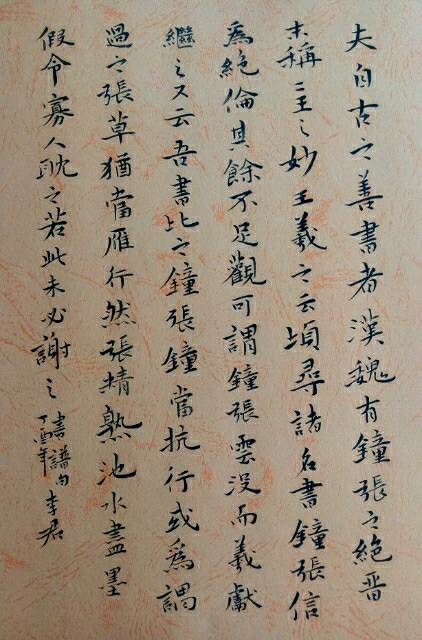 夫自古之善書者漢魏有鐘張之絕晉
末稱二王之妙王羲之云頃尋諸名書鐘張信
爲絕倫其餘不足觀可謂鐘張雲没而羲獻
繼之又云吾書比之鐘張鐘當抗行或爲謂
過之張草猶當雁行然張精熟池水盡墨
假令寡人耽之若此未必謝之
書譜句
丁酉年
李君